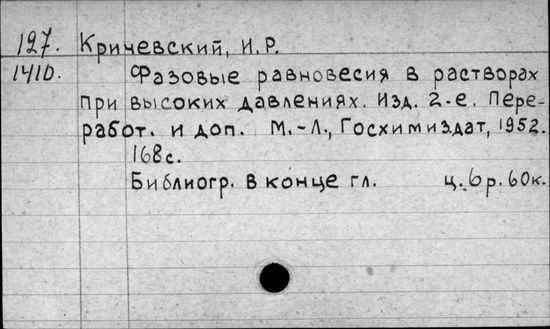 127. Кричевский, И.Р.
1410. Фазовые равновесия в растворах
при высоких давлениях. Изд. 2-е. Пере-
работ. и доп. М.-Л., Госхимиздат, 1952.
168с.
Библиогр. в конце гл. ц. 6р. 60к.